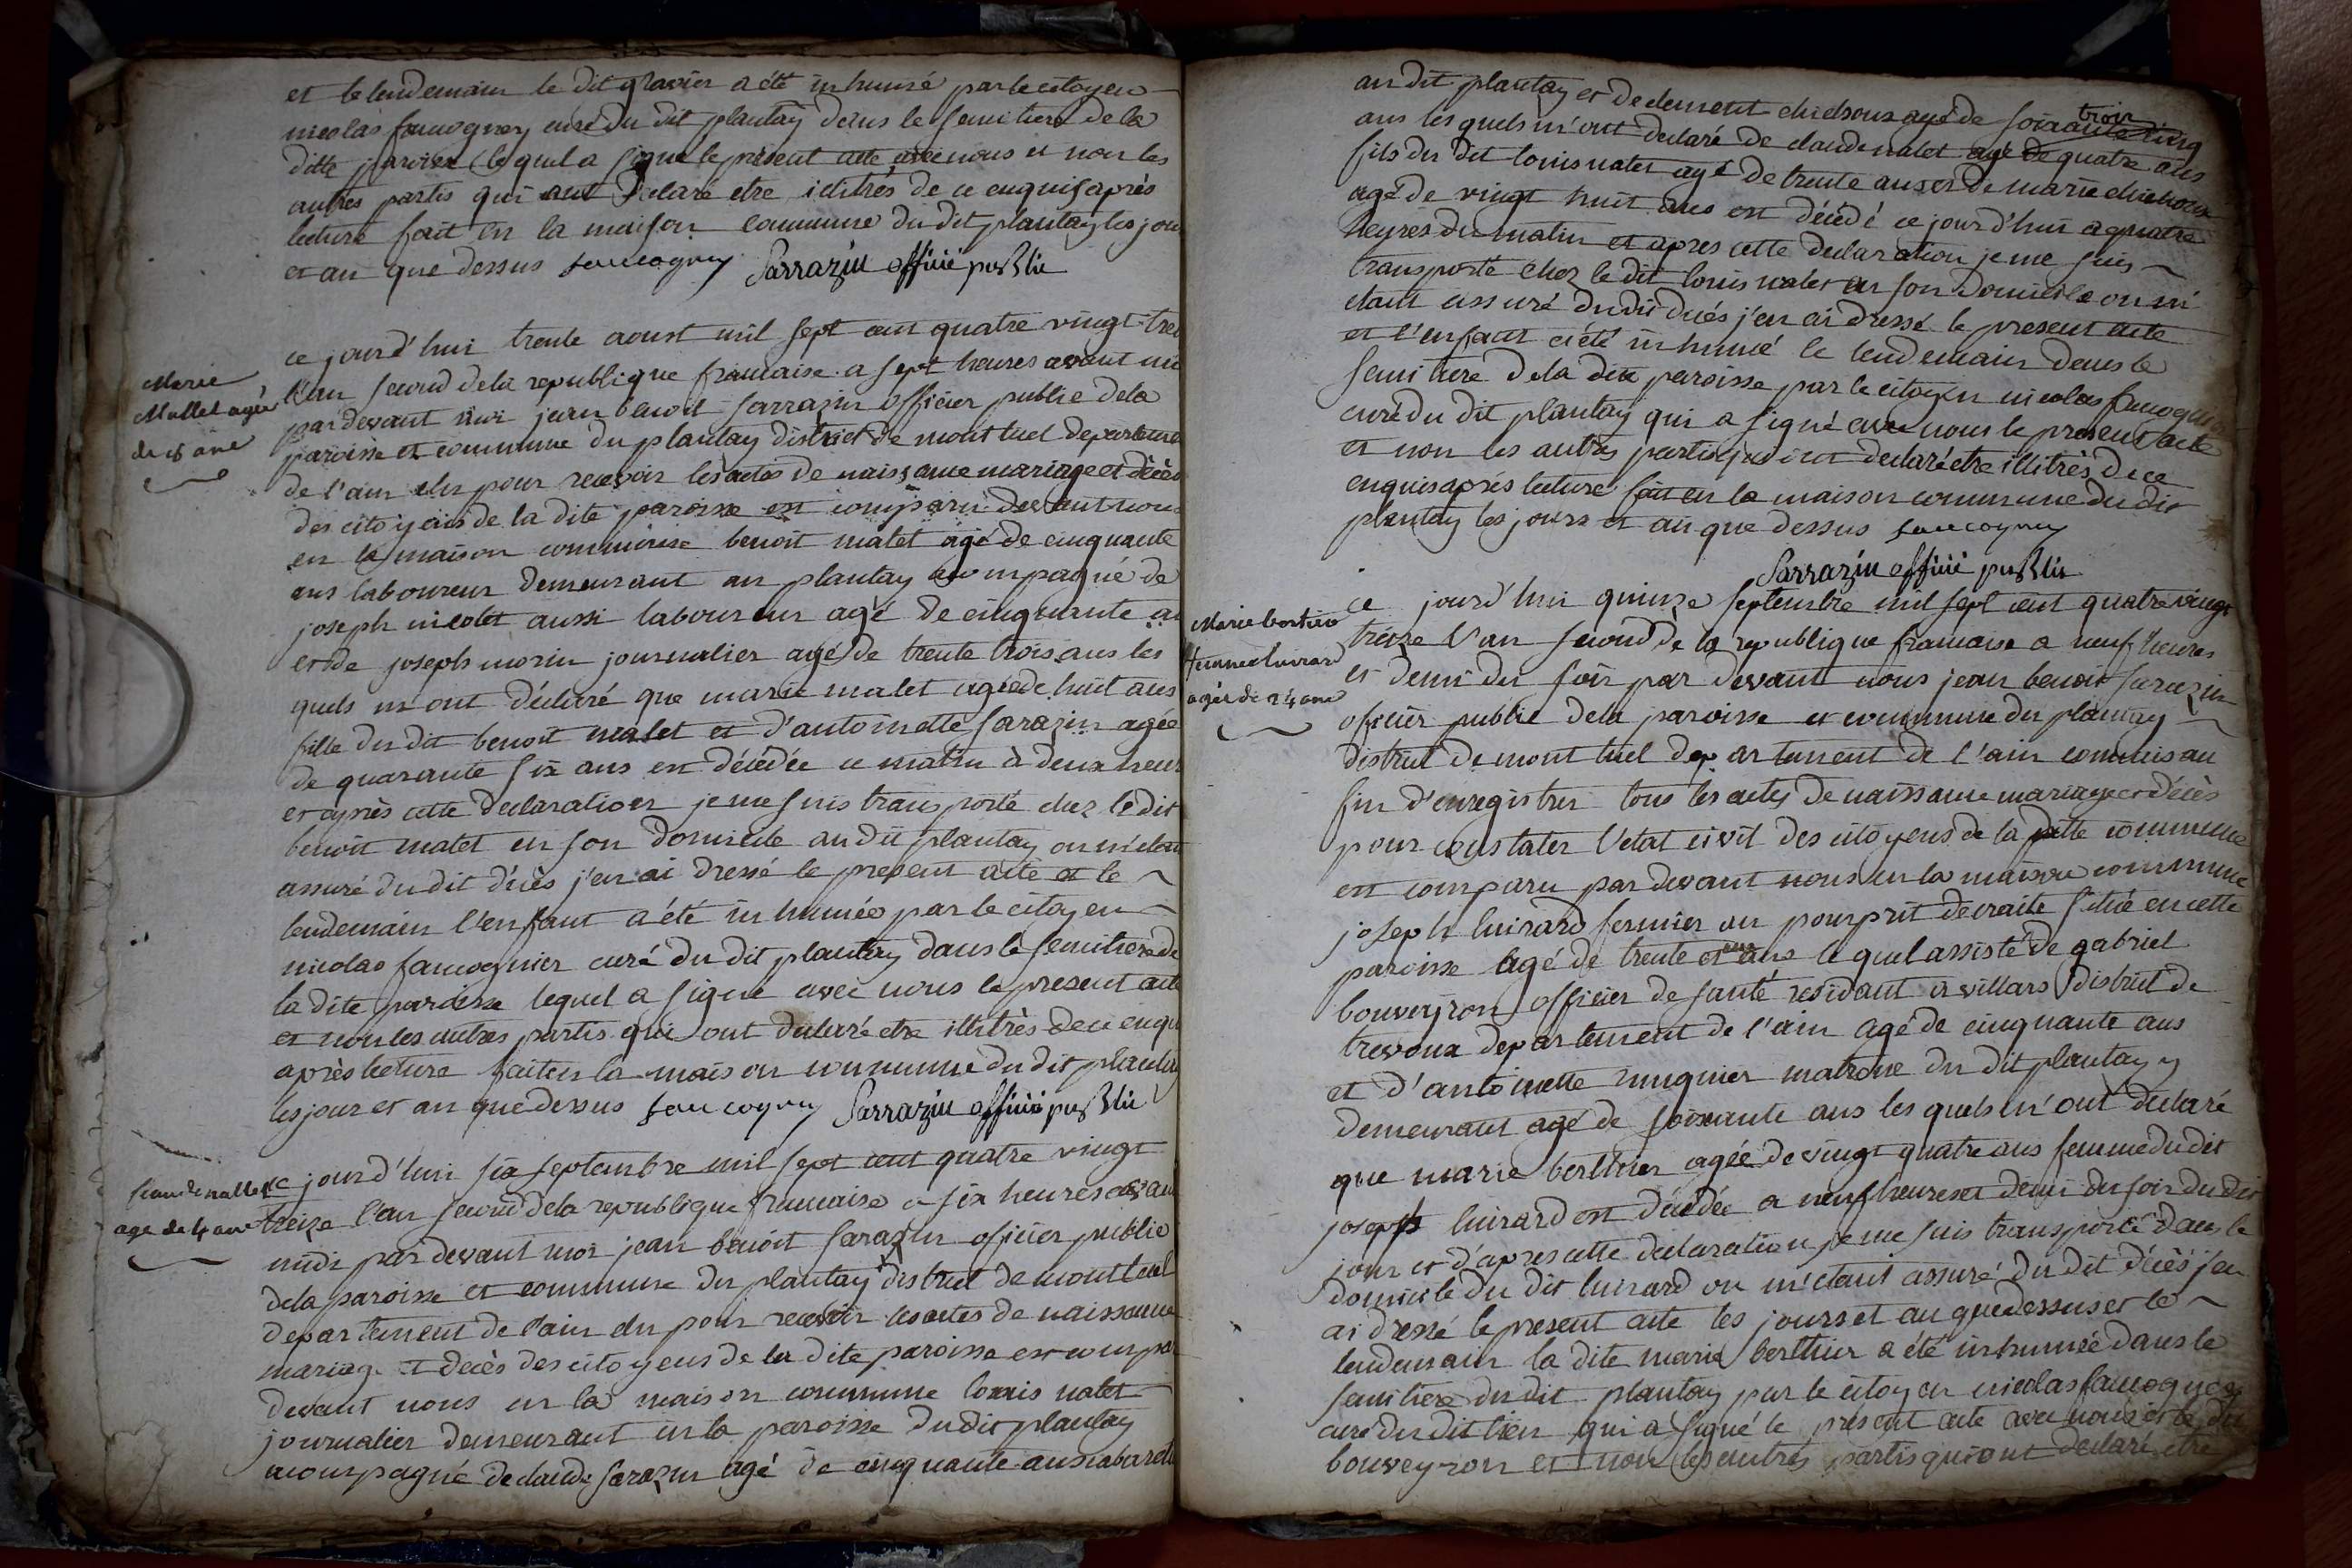 et le lendemain le dit gravier a été inhumé par le citoyen
nicolas faucogney curé du dit plantay dans le semitiere de la
ditte paroisse lequel a signé le présent acte avec nous et non les
autres partis qui ont declaré etre ilitrés de ce enquis après
lecture fait en la maison commune du dit plantay les jour
et an que dessus faucogney Sarrazin officié publié
Marie
Mallet agée
de 8 ans
ce jourd'hui trente aoust mil sept cent quatre vingt trei
l'an second de la republique francaise a sept heures avant mi
par devant moi jean benoit sarrazin officier public de la
paroisse et commune du plantay district de montluel departeme
de l'ain elu pour recevoir les actes de naissance mariage et décès
des citoyens de la dite paroisse est comparu devant nous
en la maison commune benoit malet agé de cinquante
ans laboureur demeurant au plantay acompagné de
joseph nicolet aussi laboureur agé de cinquante an
et de joseph morin journalier agé de trente trois ans les
quels m'ont déclaré que marie malet agée de huit ans
fille du dit benoit malet et d'antoinette sarazin agée
de quarante six ans est décédée ce matin à deux heur
et après cette declaration je me suis transporté chez le dit
benoit malet en son domicile au dit plantay ou m'etant
assuré du dit décès j'en ai dressé le present acte et le
lendemain l'enfant a été inhumée par le citoyen
nicolas faucognier curé du dit plantay dans le semitiere de
la dite paroisse lequel a signé avec nous le present acte
et non les autres partis qui ont declaré etre illitrès de ce enqu
après lecture fait en la maison commune du dit plantay
les jour et an que dessus faucogney Sarrazin officié publié
Claude nallet
agé de 4 ans
ce jourd'hui six septembre mil sept cent quatre vingt
treize l'an second de la republique francaise a six heures avan
midi par devant moi jean benoit sarazin officier public
de la paroisse et commune du plantay district de montluel
departement de l'ain elu pour recevoir les actes de naissance
mariage et décès des citoyens de la dite paroisse est compar
devant nous en la maison commune louis nalet
journalier demeurant en la paroisse du dit plantay
acompagné de claude sarazin agé de cinquante ans cabaretié
au dit plantay et de clement chidsoux agé de soixante trois cinq
ans les quels m'ont declaré de claude nalet agé de quatre ans
fils du dit louis nalet agé de trente ans et de marie
agé de vingt huit ans est décédé ce jourd'hui a quatre
heures du matin et apres cette declaration je me suis
transporté chez le dit louis nalet en son domicile ou m'
etant assuré du dit décés j'en ai dressé le present acte
et l'enfant a été inhumé le lendemain dans le
semitiere de la dite paroisse par le citoyen nicolas faucogney
curé du dit plantay qui a signé avec nous le present acte
et non les autres partis qui ont declaré etre illitrès de ce
enquis après lecture fait en la maison commune du dit
plantay les jours et an que dessus faucogney
Sarrazin officié publié
Marie bertier
femme luirard
agée de 24 ans
ce jourd'hui quinze septembre mil sept cent quatre vingt
treize l'an second de la republique francaise a neuf heures
et demi du soir par devant nous jean benoit sarazin
officier public de la paroisse et commune du plantay
district de montluel departement de l'ain commis au
fin d'enregistrer tous les actes de naissance mariage et décès
pour constater l'etat civil des citoyens de la ditte commune
est comparu par devant nous en la maison commune
joseph luirard fermier au pourprit de craite située en cette
paroisse agé de trente et un ans le quel assisté de gabriel
bouveyron officier de santé residant a villars district de
trevoux departement de l'ain agé de cinquante ans
et d'antoinette matrone du dit plantay y
demeurant agé de soixante ans les quels m'ont declaré
que marie berthier agée de vingt quatre ans femme du dit
joseph luirard est décédée a neuf heures et demi du soir du dit
jour et d'apres cette declaration je me suis transporté dans le
domicile du dit luirard ou m'etant assuré du dit décès j'en
ai dressé le present acte les jours et an que dessus et le
lendemain la dite marie berthier a été inhumée dans le
semitiere du dit plantay par le citoyen nicolas faucogney
curé du dit lieu qui a signé le present acte avec nous et le dit
bouveyron et non les autres partis qui ont declaré etre